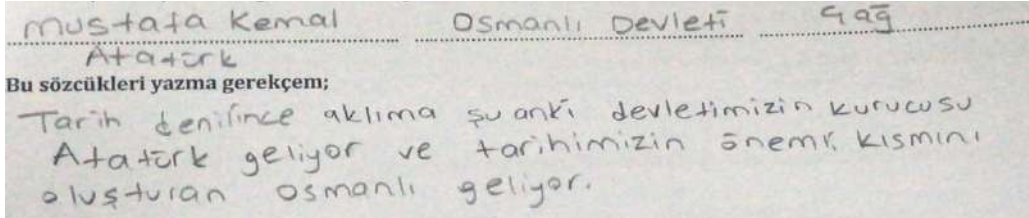 Mustafa Kemal Osmanlı Devleti Çağ
Atatürk
Bu sözcükleri yazma gerekçem;
Tarih denilince aklıma şu anki devletimizin kurucusu
Atatürk geliyor ve tarihimizin önemli kısmını
oluşturan Osmanlı geliyor.